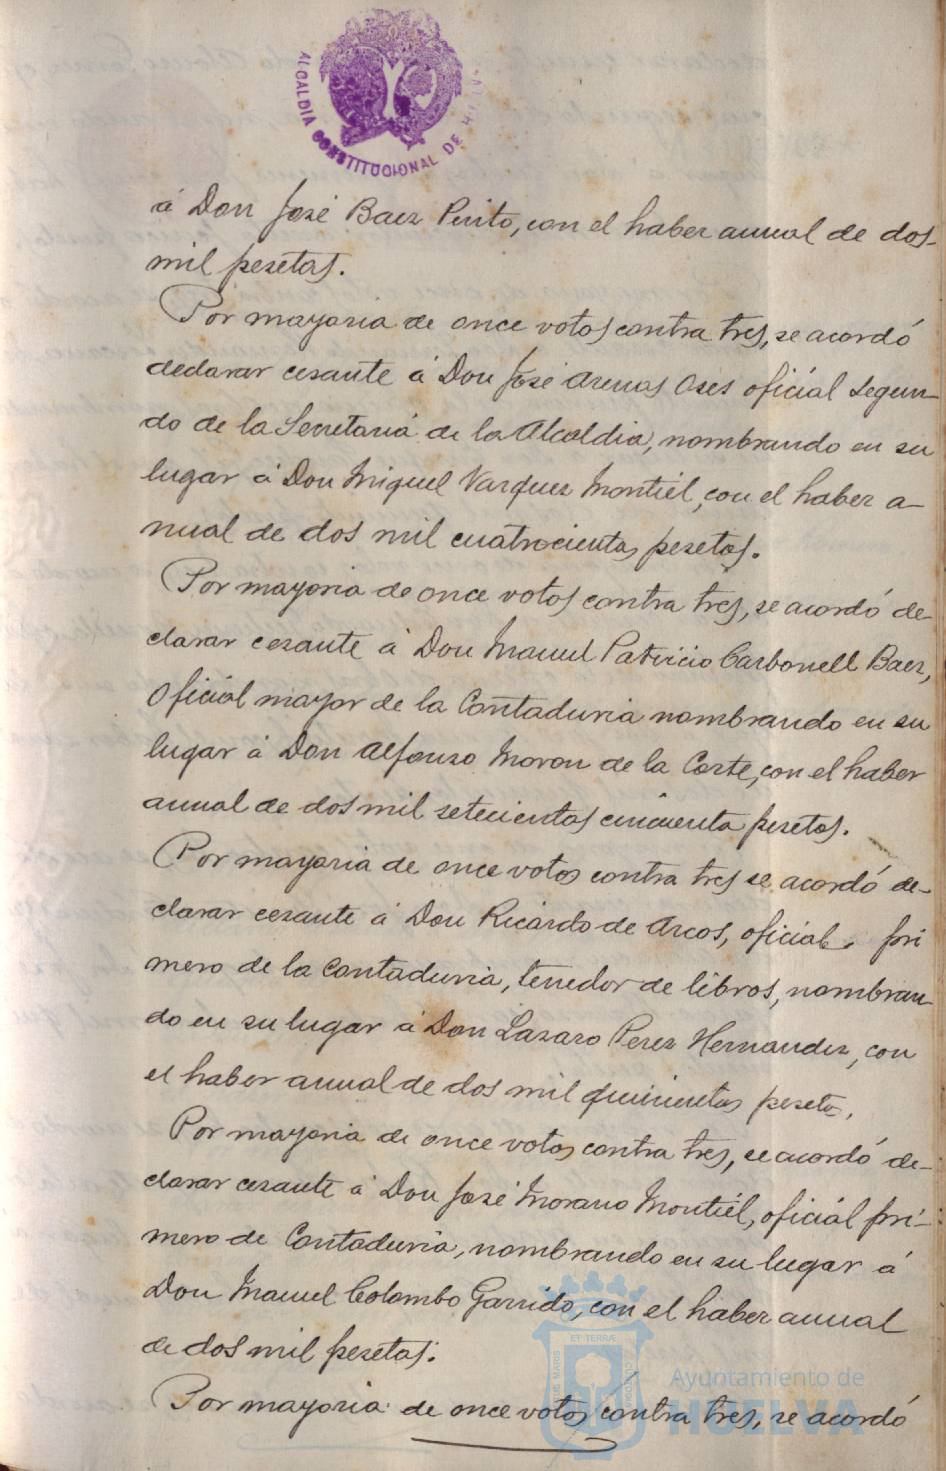 ALCALDIA CONSTITUCIONAL DE
á Don José Baez Pinto, con el haber anual de dos
mil pesetas.
Por mayoria de once votos contra tres, se acordó
declarar cesante á Don José Arenas Oses oficial segun-
do de la Secretaria de la Alcaldia, nombrando en su
lugar á Don Miguel Vazquez Montiel, con el haber a-
nual de dos mil cuatrocientas pesetas.
Por mayoria de once votos contra tres, se acordó de-
clarar cesante á Don Manuel Patricio Carbonell Baez,
Oficial mayor de la Contaduria nombrando en su
lugar á Don Alfonso Moron de la Corte, con el haber
anual de dos mil setecientas cincuenta pesetas.
Por mayoria de once votos contra tres se acordó de-
clarar cesante á Don Ricardo de Arcos, oficial pri
mero de la Contaduria, tenedor de libros, nombran-
do en su lugar á Don Lazaro Perez Hernandez, con
el haber anual de dos mil quinientas pesetas.
Por mayoria de once votos contra tres, se acordó de-
clarar cesante á Don José Morano Montiel, oficial pri-
mero de Contaduria, nombrando en su lugar á
Don Manuel Colombo Garrido, con el haber anual
de dos mil pesetas.
Por mayoria de once votos contra tres, se acordó
ET TERRÆ
Ayuntamiento de
HUELVA